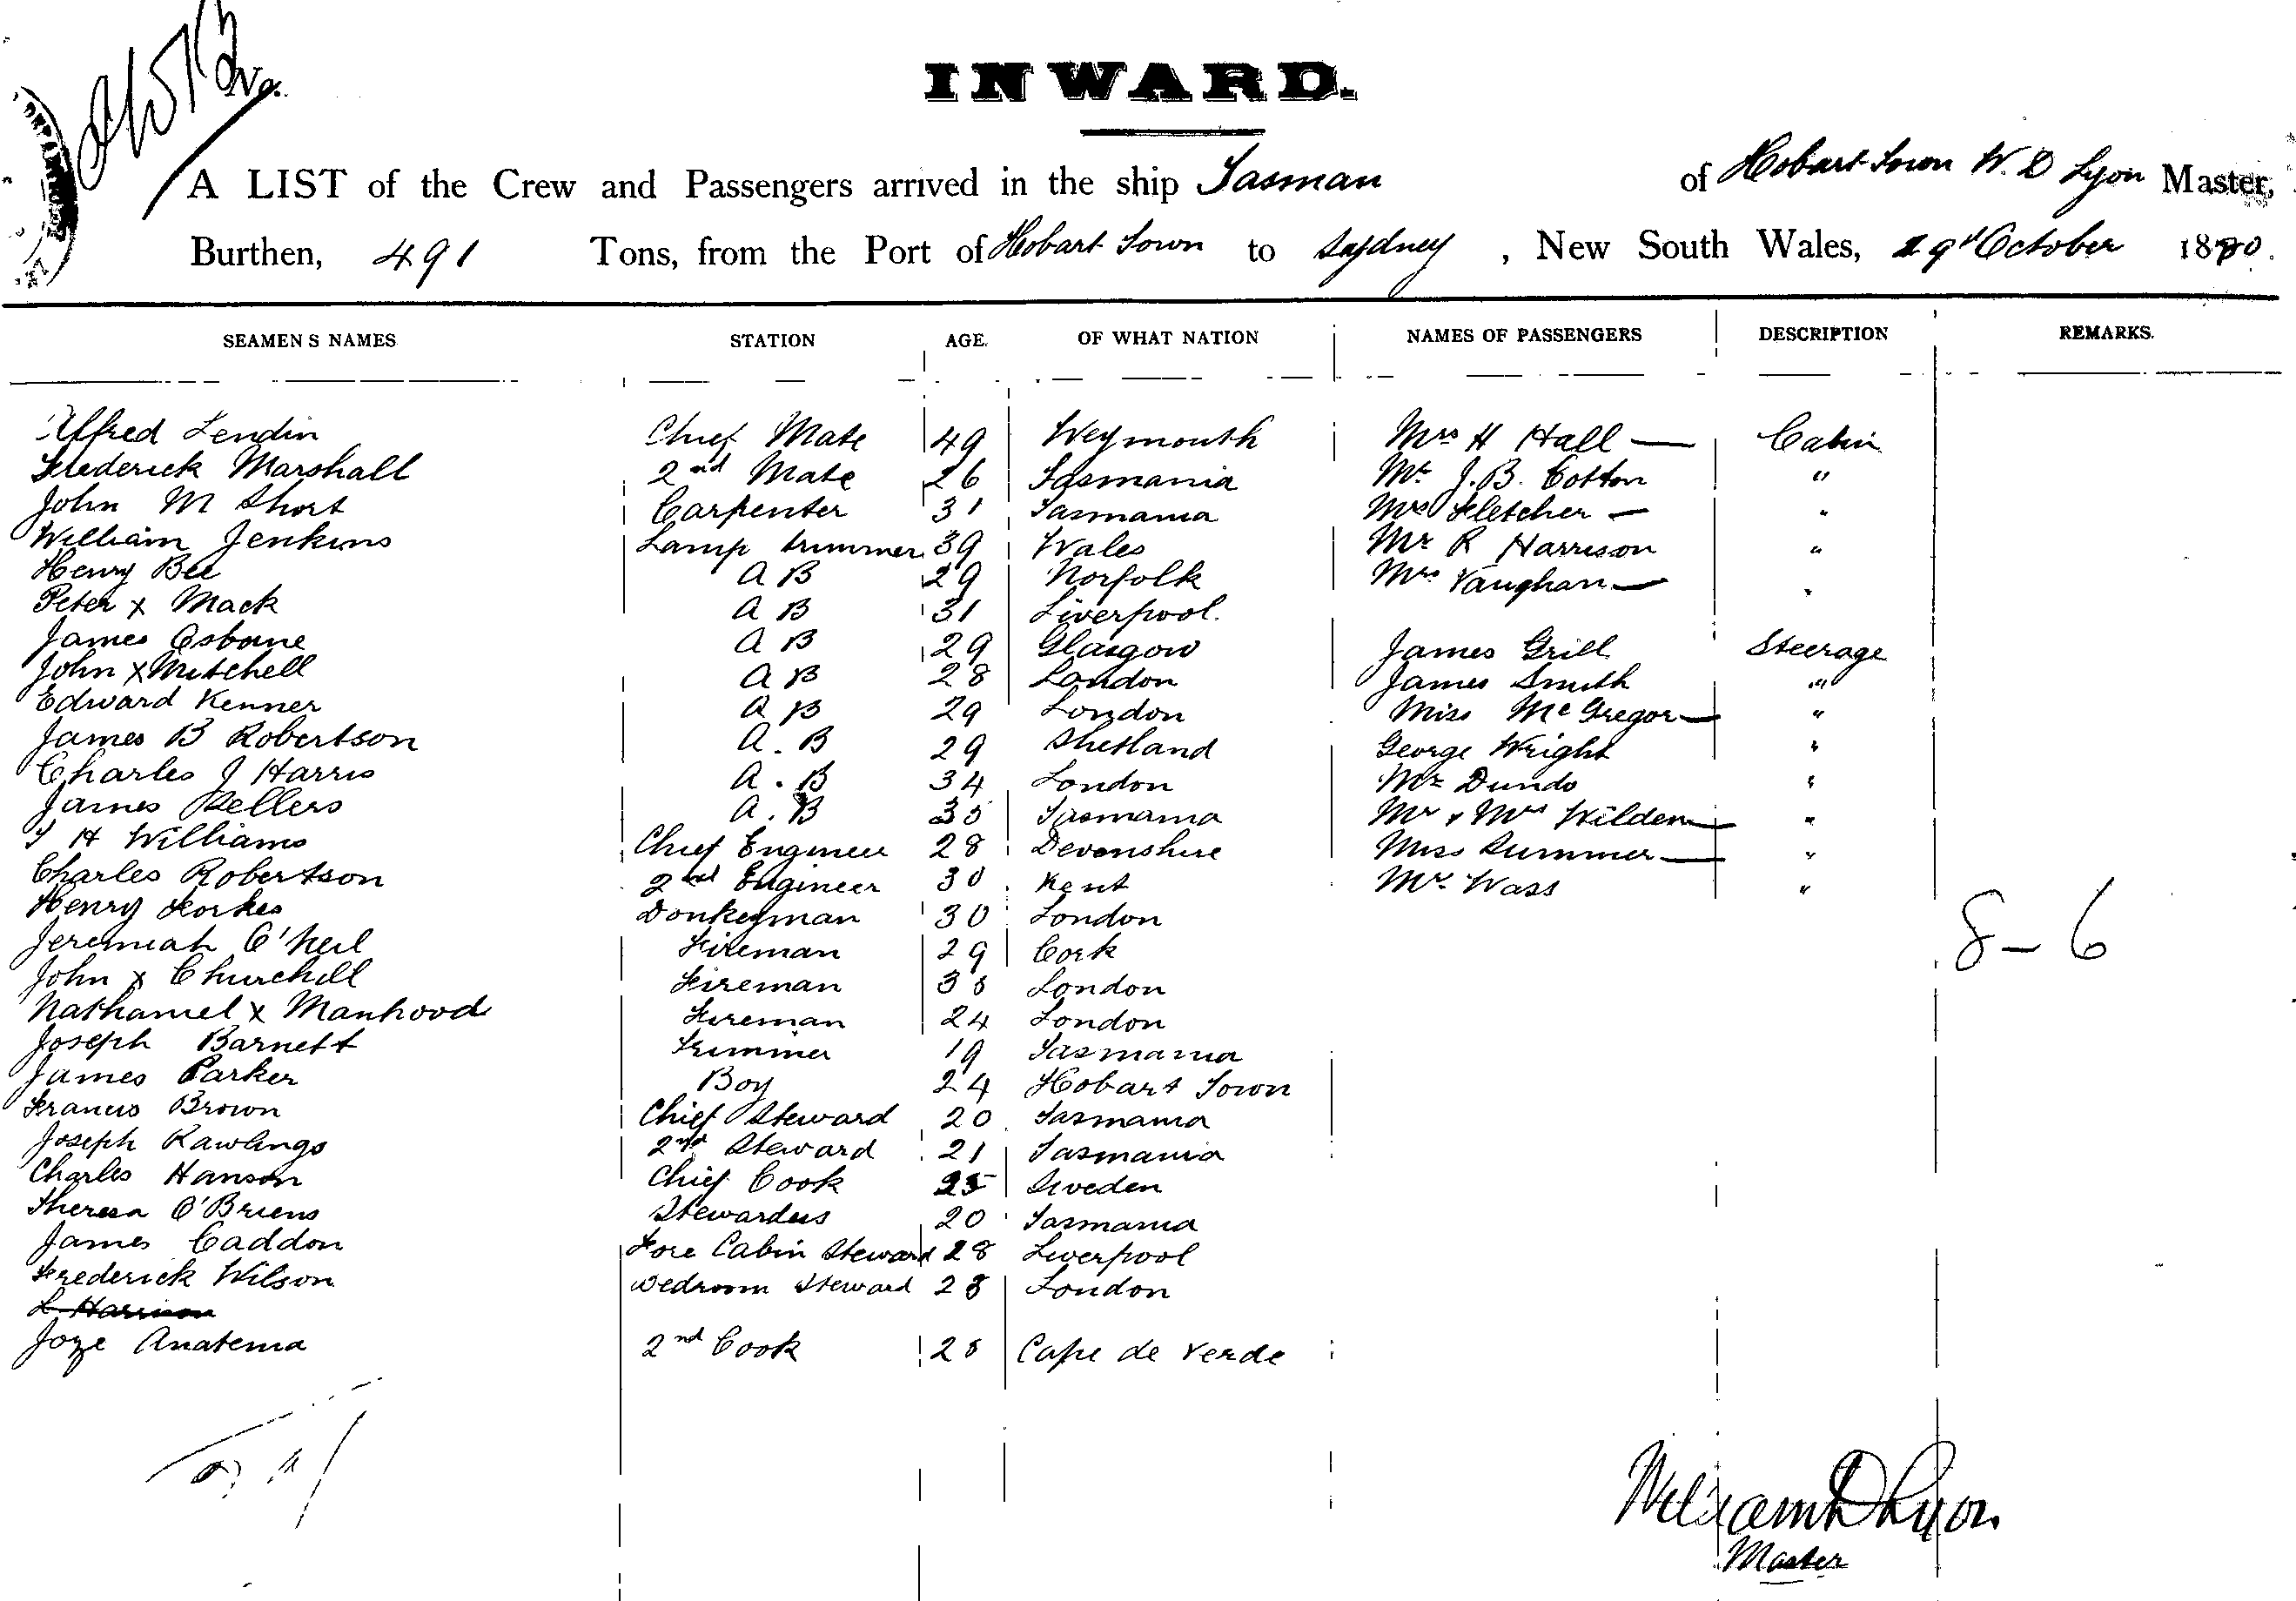 INWARD.
A LIST of the Crew and Passengers arrived in the ship Tasman of Hobart Town W. D Lyon Master,
Burthen, 491 Tons, from the Port of Hobart Town to Sydney, New South Wales, 29th October 1880.
SEAMEN'S NAMES STATION AGE. OF WHAT NATION NAMES OF PASSENGERS DESCRIPTION REMARKS.
Alfred Lendin Chief Mate 49 Weymouth Mrs H Hall — Cabin
Frederick Marshall 2nd Mate 26 Tasmania Mr J. B. Cotton "
John M Short Carpenter 31 Tasmania Mrs Fletcher — "
William Jenkins Lamp trimmer 39 Wales Mr R Harrison "
Henry Bee A B 29 Norfolk Mrs Vaughan — "
Peter x Mack A B 31 Liverpool.
James Osborne A B 29 Glasgow James Grill Steerage
John x Mitchell A B 28 London James Smith "
Edward Kenner A B 29 London Miss McGregor — "
James B Robertson A. B 29 Shetland George Wright "
Charles J Harris A. B 34 London Mr Dundo "
James Sellers A. B 35 Tasmania Mr & Mrs Wilden — "
T H Williams Chief Engineer 28 Devonshire Miss Summer — "
Charles Robertson 2nd Engineer 30 Kent Mr Wass "
Henry Forkes Donkeyman 30 London
Jeremiah O'Neil Fireman 29 Cork 8-6
John x Churchill Fireman 38 London
Nathaniel x Manhood Fireman 24 London
Joseph Barnett Trimmer 19 Tasmania
James Parker Boy 24 Hobart Town
Francis Brown Chief Steward 20 Tasmania
Joseph Rawlings 2nd Steward 21 Tasmania
Charles Hanson Chief Cook 25 Sweden
Theresa O'Briens Stewardess 20 Tasmania
James Caddon Fore Cabin Steward 28 Liverpool
Frederick Wilson Bedroom Steward 28 London
L Harrison
Joze Anatema 2nd Cook 28 Cape de Verde
William D Lyon
Master